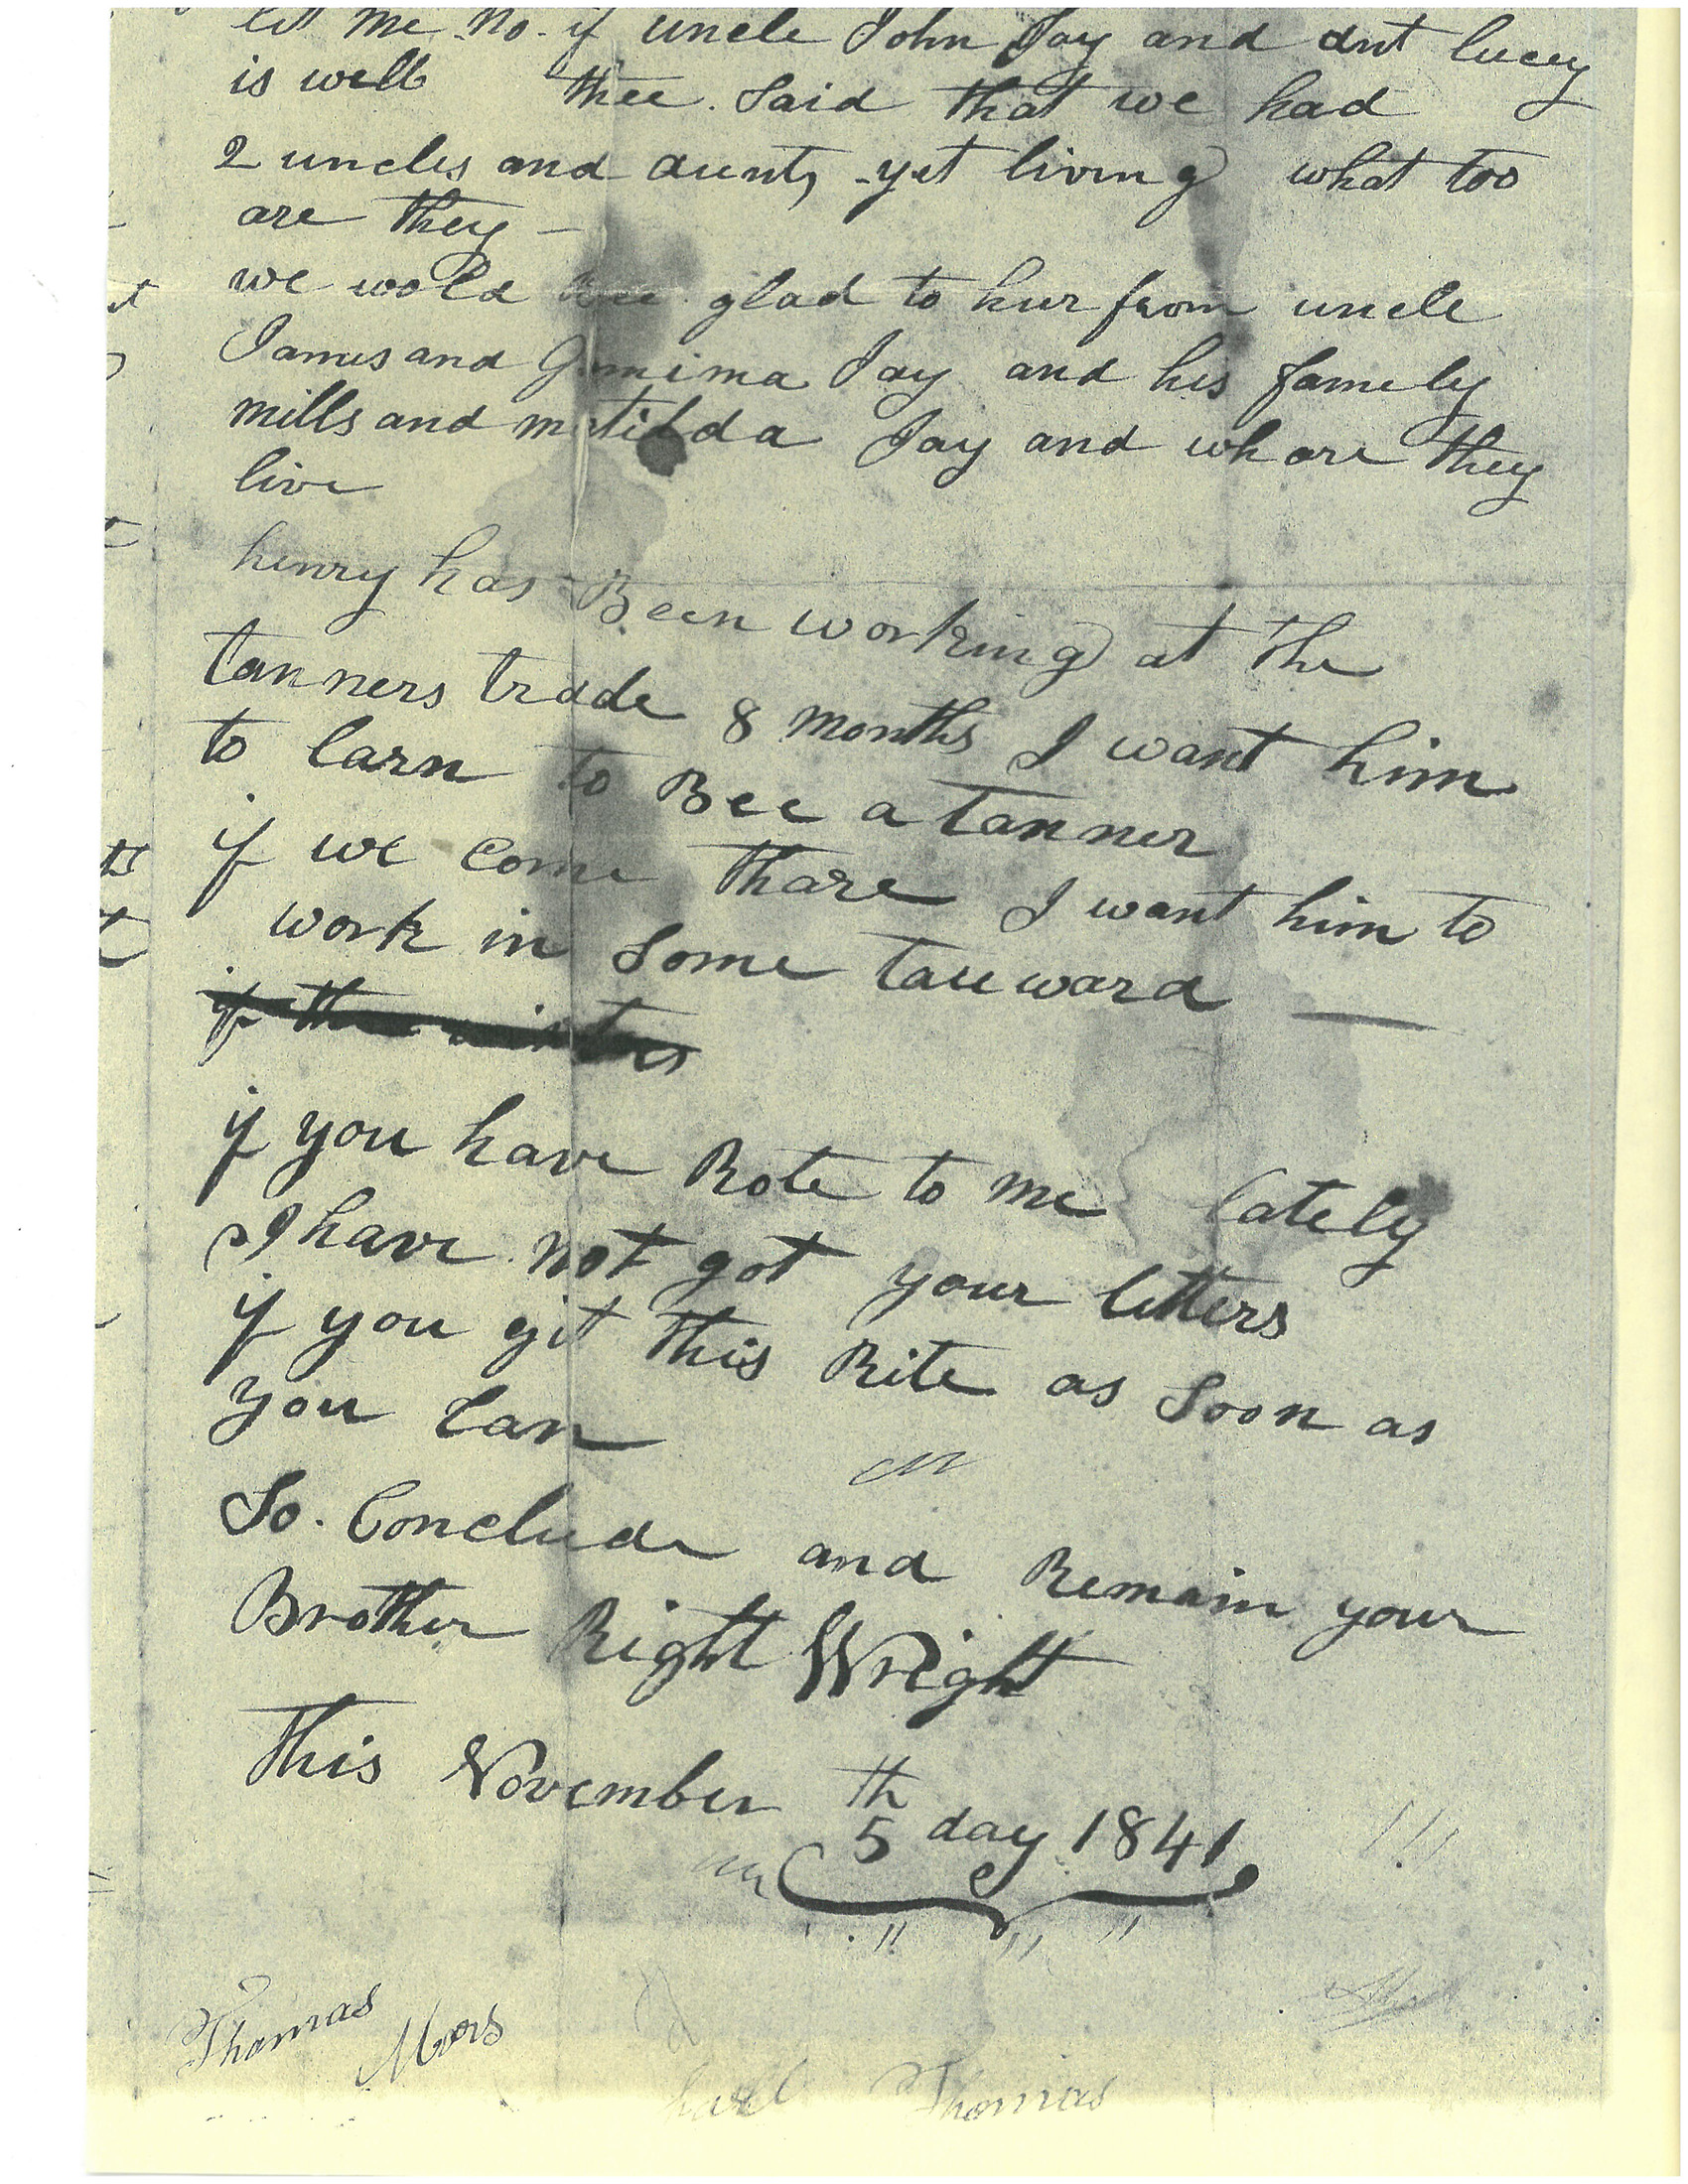 let me no. if uncle John Jay and ant lucey
is well thee. Said that we had
2 uncles and aunts yet living what too
are they -
we wold Bee glad to hur from uncle
James and Gemima Jay and his famely
mills and matilda Jay and whare they
live
henry has Been working at the
tanners trade 8 months I want him
to larn to Bee a tanner
if we come thare I want him to
work in Some
if you have Rote to me lately
I have not got your letters
if you git this Rite as Soon as
you Can
So. Conclude and Remain your
Brother Right Wright
This November 5th day 1841
Thomas
Mors
Thomas